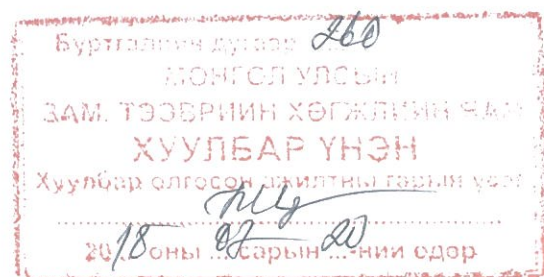 Бүртгэлийн дугаар 260
МОНГОЛ УЛСЫН
ЗАМ, ТЭЭВРИЙН ХӨГЖЛИЙН ЯАМ
ХУУЛБАР ҮНЭН
Хуулбар олгосон ажилтны гарын үсэг
2018 оны 07 сарын 20-ний өдөр